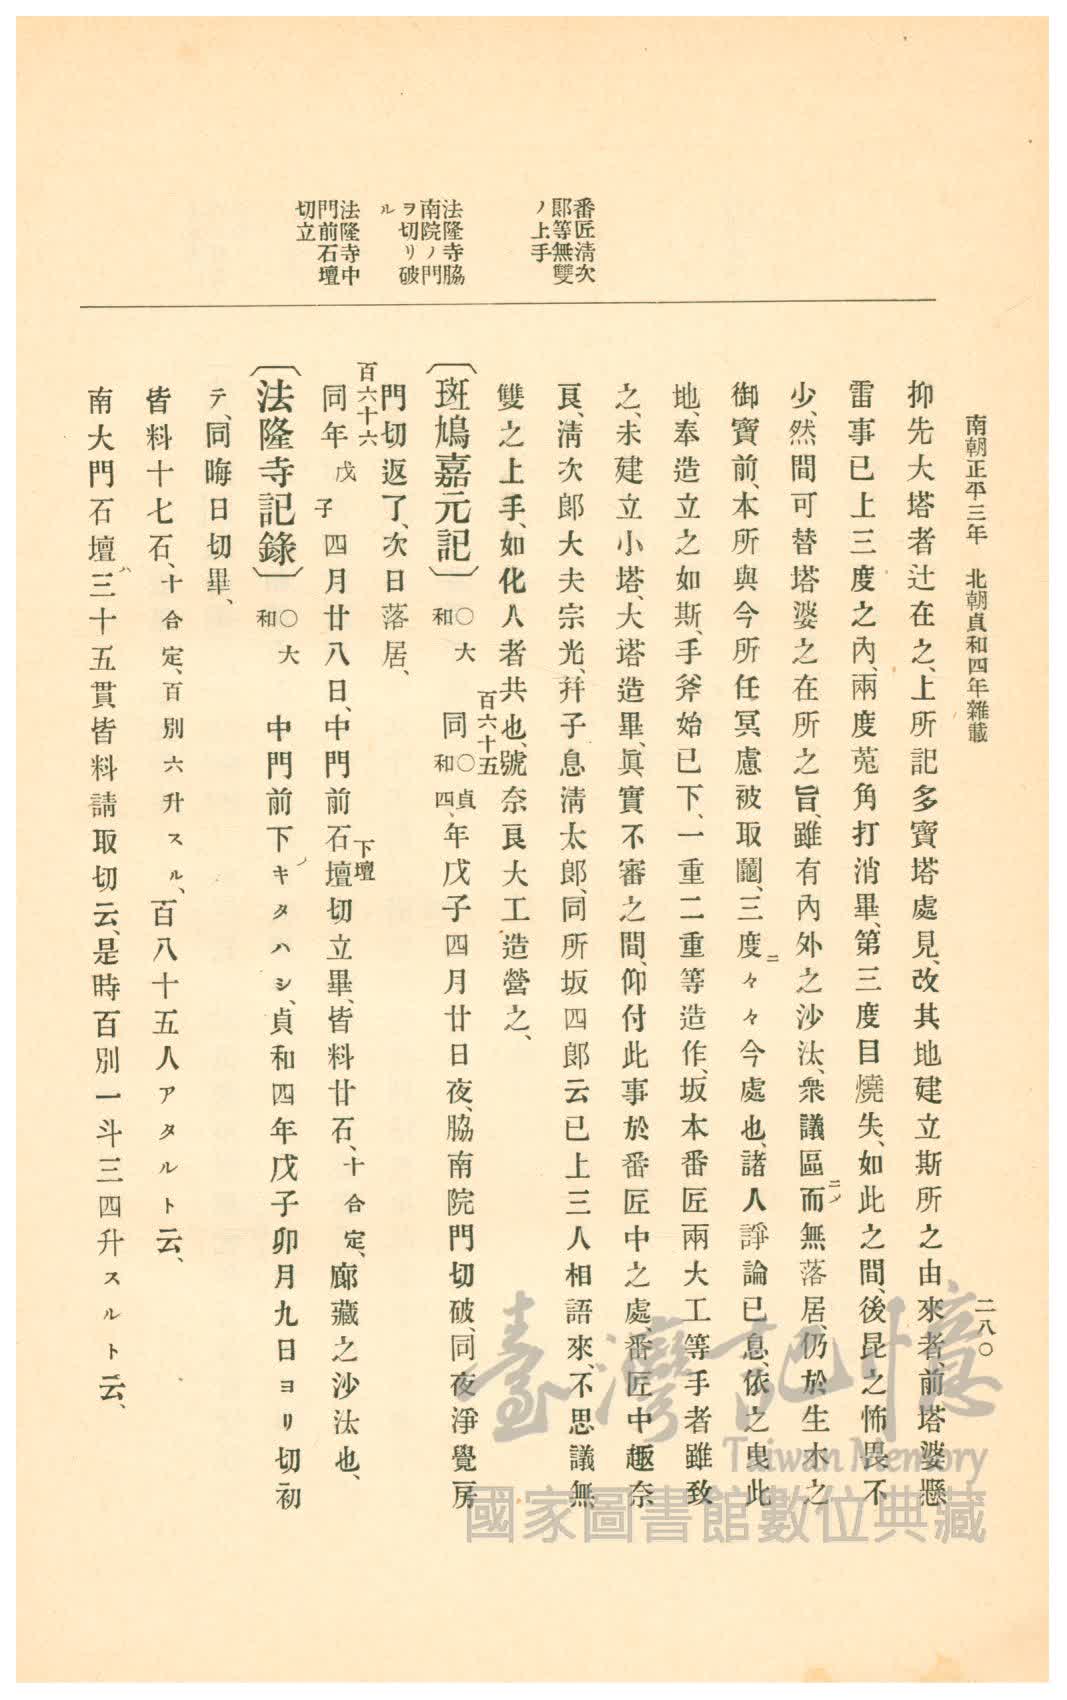 南朝正平三年　北朝貞和四年雜載
二八〇
番匠淸次
郎等無雙
ノ上手
法隆寺脇
南院ノ門
ヲ切リ破
ル
法隆寺中
門前石壇
切立
抑先大塔者辻在之、上所記多寶塔處見、改其地建立斯所之由來者、前塔婆懸
雷事已上三度之內、兩度蒐角打消畢、第三度目燒失、如此之間、後昆之怖畏不
少、然間可替塔婆之在所之旨、雖有內外之沙汰、衆議區而ニノ無落居、仍於生木之
御寶前、本所與今所任冥慮被取鬮、三度ニ々々今處也、諸人諍論已息、依之曳此
地、奉造立之如斯、手斧始已下、一重二重等造作、坂本番匠兩大工等手者雖致
之、未建立小塔、大塔造畢、眞實不審之間、仰付此事於番匠中之處、番匠中趣奈
良、淸次郎大夫宗光、幷子息淸太郎、同所坂四郎云已上三人相語來、不思議無
雙之上手、如化人者共也、號奈良大工造營之、
〔斑鳩嘉元記〕○大和　百六十五　同○貞和四、年戊子四月廿日夜、脇南院門切破、同夜淨覺房
門切返了、次日落居、
百六十六
同年戊子四月廿八日、中門前石壇下壇切立畢、皆料廿石、十合定、廊藏之沙汰也、
〔法隆寺記錄〕○大和　中門前下ノキタハシ、貞和四年戊子卯月九日ヨリ切初
テ、同晦日切畢、
皆料十七石、十合定、百別六升スル、百八十五人アタルト云、
南大門石壇ハ三十五貫皆料請取切云、是時百別一斗三四升スルト云、
臺灣記憶
Taiwan Memory
國家圖書館數位典藏